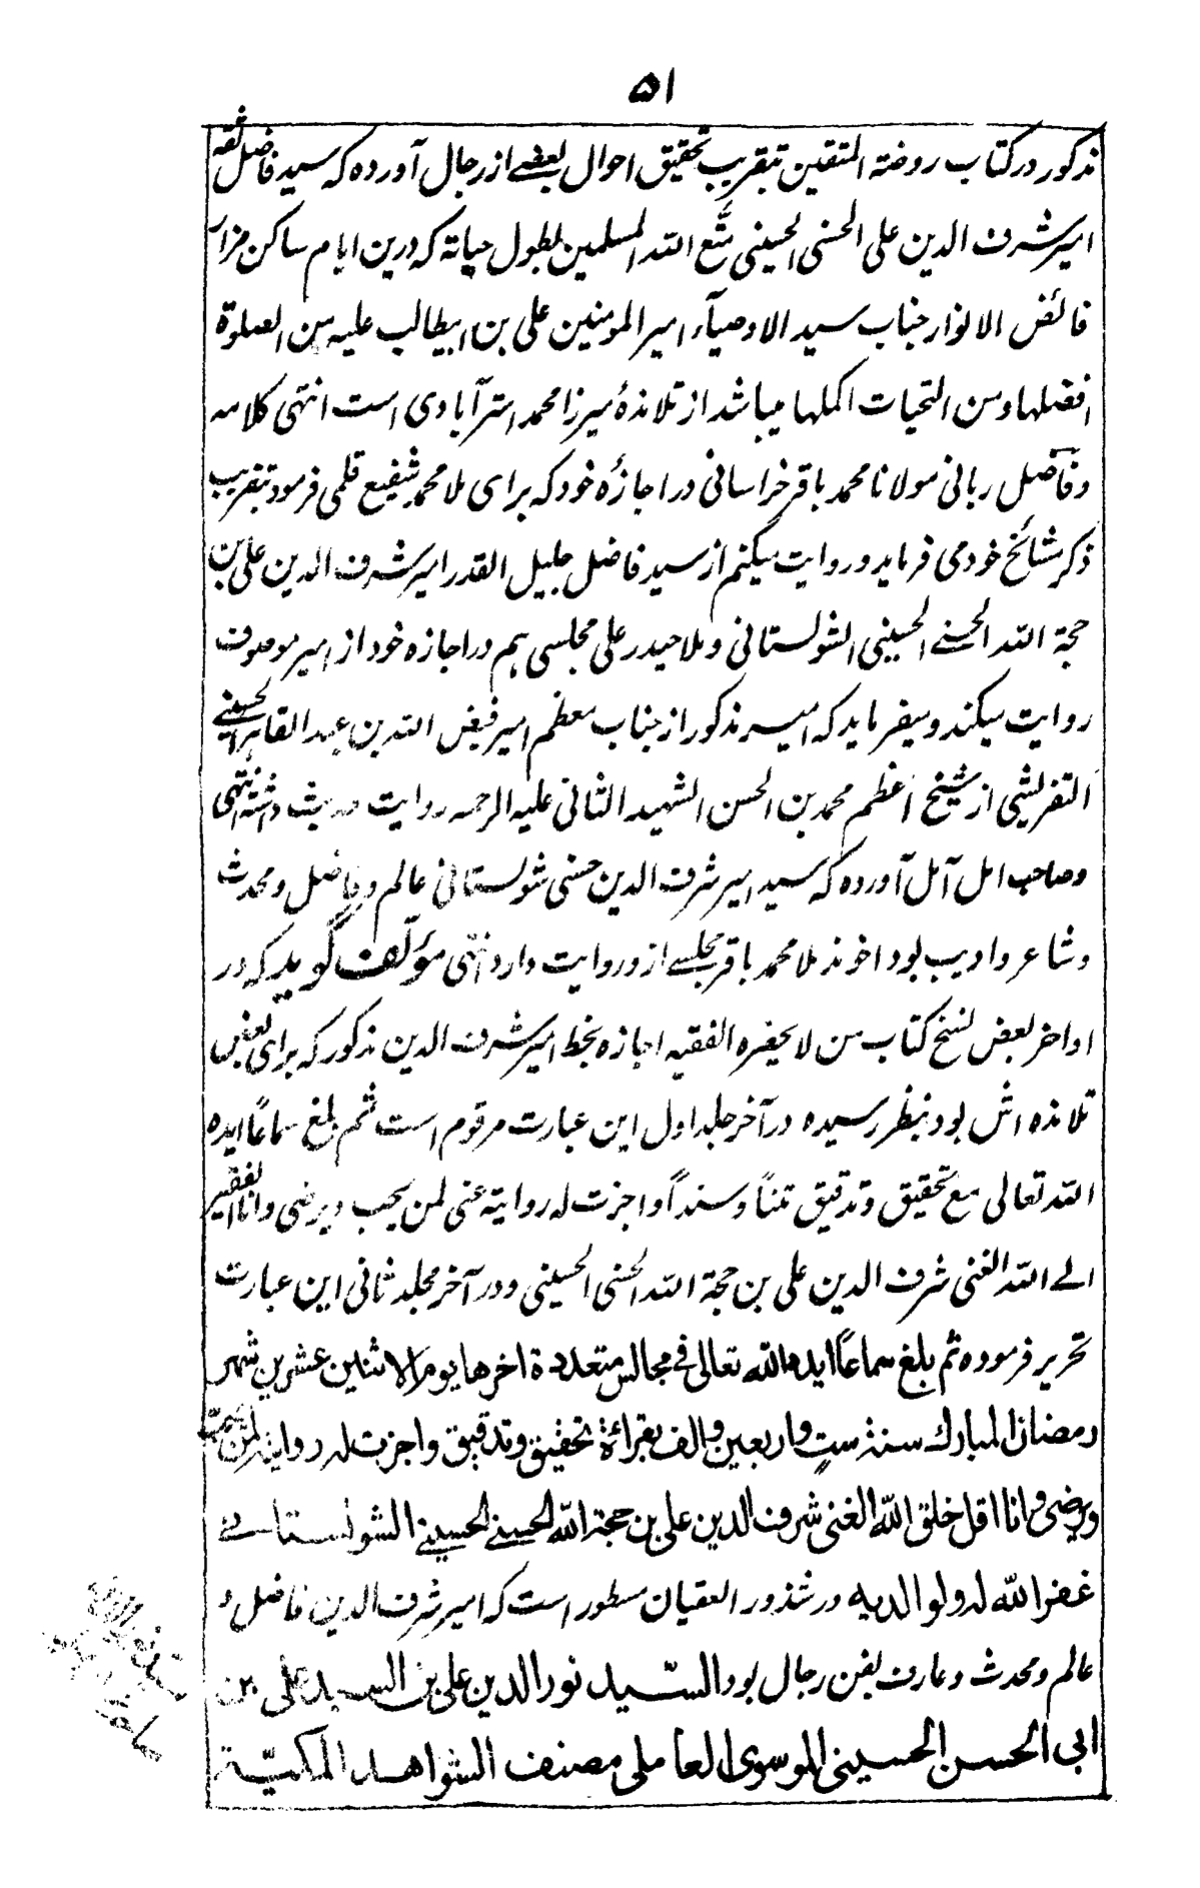 ۵۱
مذکور در کتاب روضة المتقین بتقریب تحقیق احوال بعضے از رجال آورده که سید فاضل ثقه
امیر شرف الدین علی الحسنی الحسینی متّع الله المسلمین بطول حیاته که درین ایام ساکن مزار
فائض الانوار جناب سید الاوصیآء امیر المومنین علی بن ابیطالب علیه من الصلوة
افضلها و من التحیات اکملها میباشد از تلامذهٔ میرزا محمد استرآبادی است انتهی کلامه
و فاضل ربانی مولانا محمد باقر خراسانی در اجازهٔ خود که برای ملا محمد شفیع قلمی فرمود بتقریب
ذکر مشائخ خود می فرماید و روایت میکنم از سید فاضل جلیل القدر امیر شرف الدین علی بن
حجة الله الحسنے الحسینی الشولستانی و ملا حیدر علی مجلسی هم در اجازه خود از امیر موصوف
روایت میکند و میفرماید که امیر مذکور از جناب معظم امیر فیض الله بن عبد القاهر الحسینے
التفریشی از شیخ اعظم محمد بن الحسن الشهید الثانی علیه الرحمه روایت حدیث داشته انتهی
و صاحب امل آمل آورده که سید امیر شرف الدین حسنی شولستانی عالم و فاضل و محدث
و شاعر و ادیب بود اخوند ملا محمد باقر مجلسے ازو روایت دارد انتهی مؤلف گوید که در
اواخر بعض نسخ کتاب من لا یحضره الفقیه اجازه بخط امیر شرف الدین مذکور که برای بعض
تلامذه اش بود بنظر رسیده در آخر جلد اول این عبارت مرقوم است ثم بلغ سماعًا ایده
الله تعالی مع تحقیق و تدقیق متنًا و سنداً و اجزت له روایة عنی لمن یحب و یرضی و انا الفقیر
الے الله الغنی شرف الدین علی بن حجة الله الحسنی الحسینی و در آخر مجلد ثانی این عبارت
تحریر فرموده ثم بلغ سماعًا ایده الله تعالی فی مجالس متعددة اخرها یوم الاثنین عشرین شهر
رمضان المبارك سنة ست و اربعین و الف بقرائة تحقیق و تدقیق و اجزت له روایته لمن
و یرضی و انا اقل خلق الله الغنی شرف الدین علی بن حجة الله الحسنے الحسینے الشولستانے
غفر الله له و لوالدیه و در شذور العقیان مسطور است که امیر شرف الدین فاضل و
عالم و محدث و عارف بفن رجال بود السّید نور الدین علی بن السید علی بن
ابی الحسن الحسینی الموسوی العاملی مصنف الشواهد المکیّة